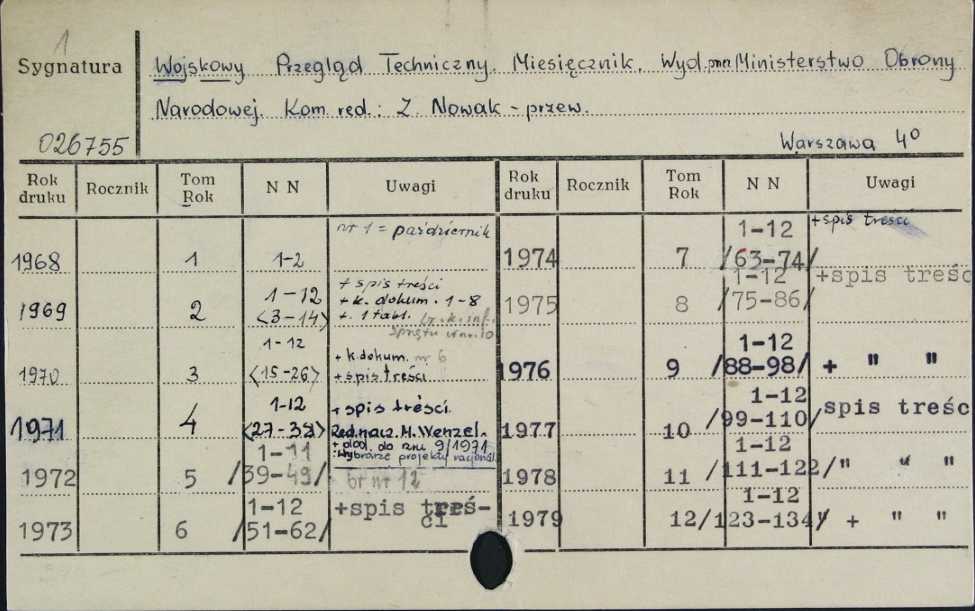 1
Sygnatura
026755
Wojskowy Przegląd Techniczny. Miesięcznik. Wyd. Ministerstwo Obrony
Narodowej. Kom. red.: Z. Nowak - przew.
Warszawa 4°
Rok druku Rocznik Tom Rok N N Uwagi Rok druku Rocznik Tom Rok N N Uwagi
nr 1 = październik
1968 1 1-2
+ spis treści
1969 2 1-12 + k. dokum. 1-8
<3-14> + 1 tabl.
1970 3 1-12 + k. dokum. nr 6
<15-26> + spis treści
1971 4 1-12 + spis treści
<27-38> Red. nacz. M. Wenzel.
+ dod. do nru 9/1971
: Wybrane projekty
1972 5 1-11
/39-49/ br nr 12
1973 6 1-12 +spis treś-
/51-62/ ci
1974 7 1-12 + spis treści
/63-74/
1975 8 1-12 +spis treśc
/75-86/
1976 9 1-12
/88-98/ + " "
1977 10 1-12 spis treśc
/99-110/
1978 11 1-12
/111-122/ " " "
1979 12 1-12
/123-134/ + " "